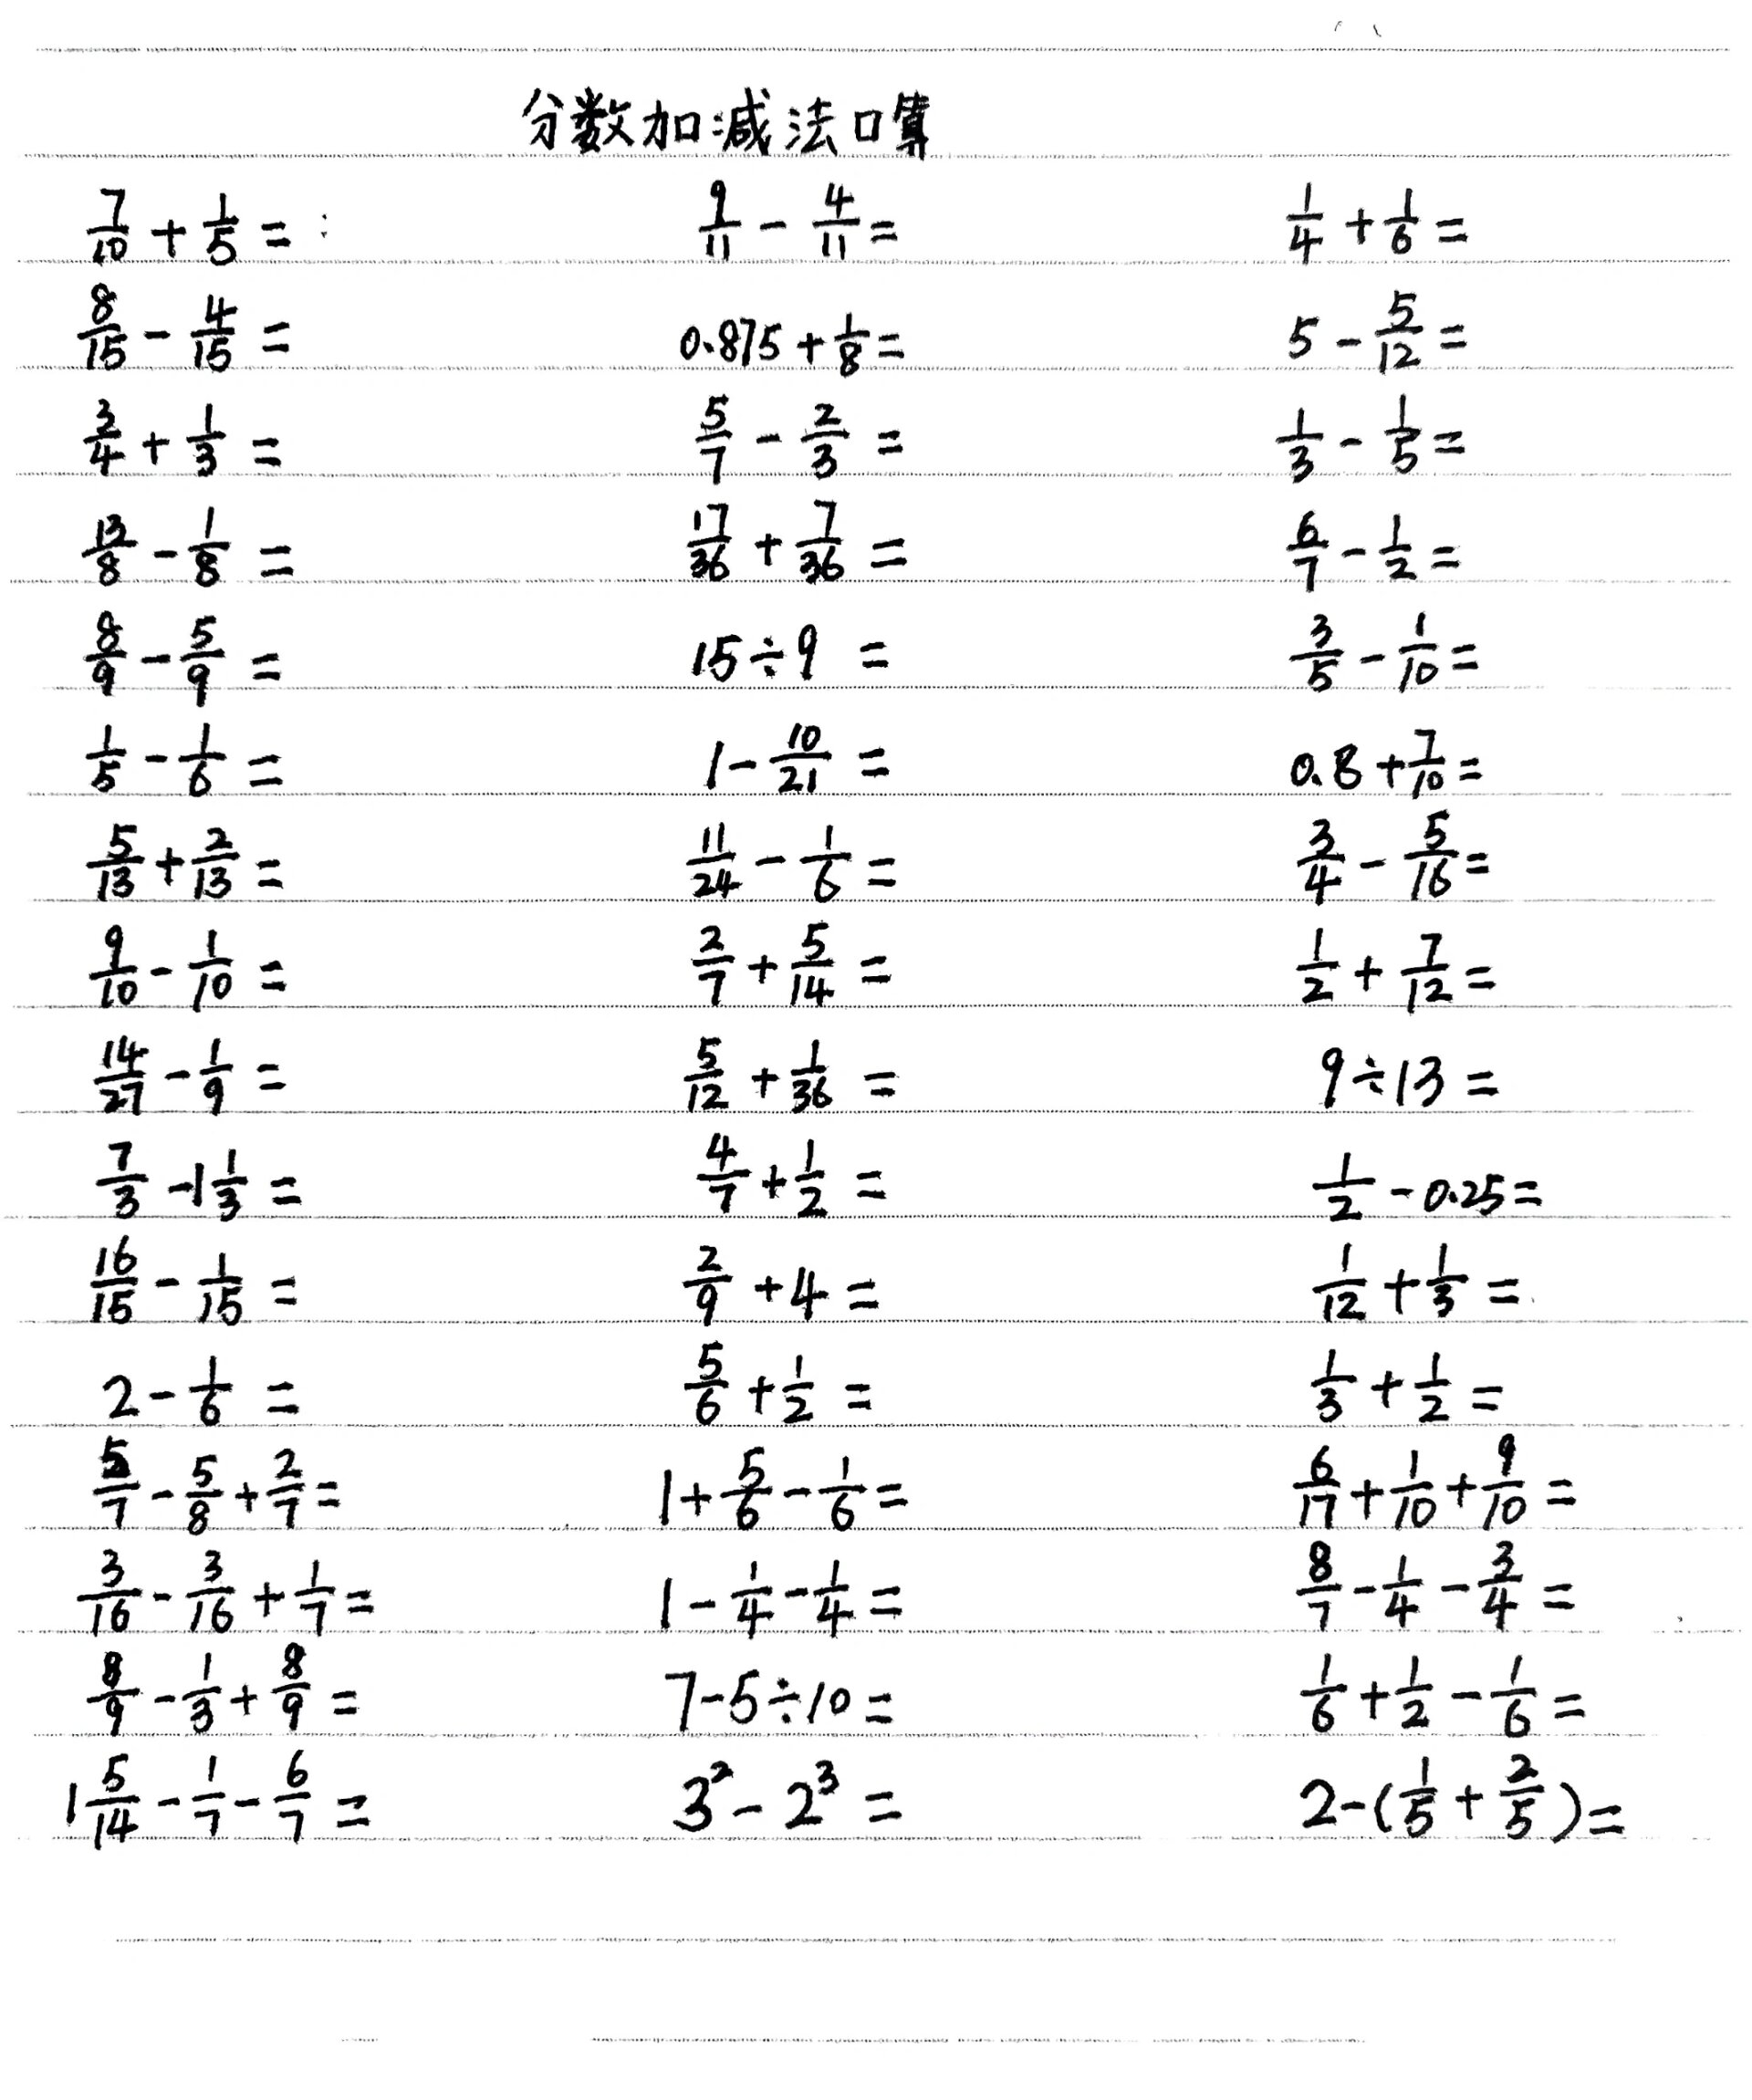 分数加减法口算
7/10 + 1/5 = 9/11 - 4/11 = 1/4 + 1/6 =
8/15 - 4/15 = 0.875 + 1/8 = 5 - 5/12 =
3/4 + 1/3 = 5/7 - 2/3 = 1/3 - 1/5 =
13/8 - 1/8 = 17/36 + 7/36 = 6/7 - 1/2 =
8/9 - 5/9 = 15÷9 = 3/5 - 1/10 =
1/5 - 1/6 = 1 - 10/21 = 0.8 + 7/10 =
5/13 + 2/13 = 11/24 - 1/6 = 3/4 - 5/16 =
9/10 - 1/10 = 2/7 + 5/14 = 1/2 + 7/12 =
14/27 - 1/9 = 5/12 + 1/36 = 9÷13 =
7/3 - 1 1/3 = 4/7 + 1/2 = 1/2 - 0.25 =
16/15 - 1/15 = 2/9 + 4 = 1/12 + 1/3 =
2 - 1/6 = 5/6 + 1/2 = 1/3 + 1/2 =
5/7 - 5/8 + 2/7 = 1 + 5/6 - 1/6 = 6/17 + 1/10 + 9/10 =
3/16 - 3/16 + 1/7 = 1 - 1/4 - 1/4 = 8/7 - 1/4 - 3/4 =
8/9 - 1/3 + 8/9 = 7-5÷10 = 1/6 + 1/2 - 1/6 =
1 5/14 - 1/7 - 6/7 = 3² - 2³ = 2-(1/5 + 2/5) =